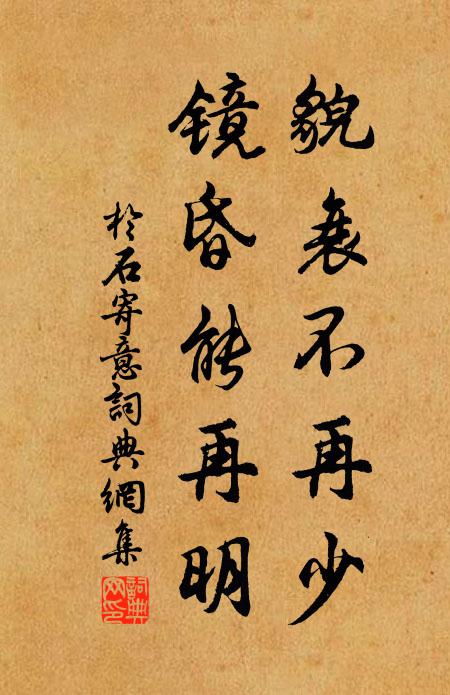 貌衰不再少
镜昏能再明
於石寄意詞典網集
詞典网印